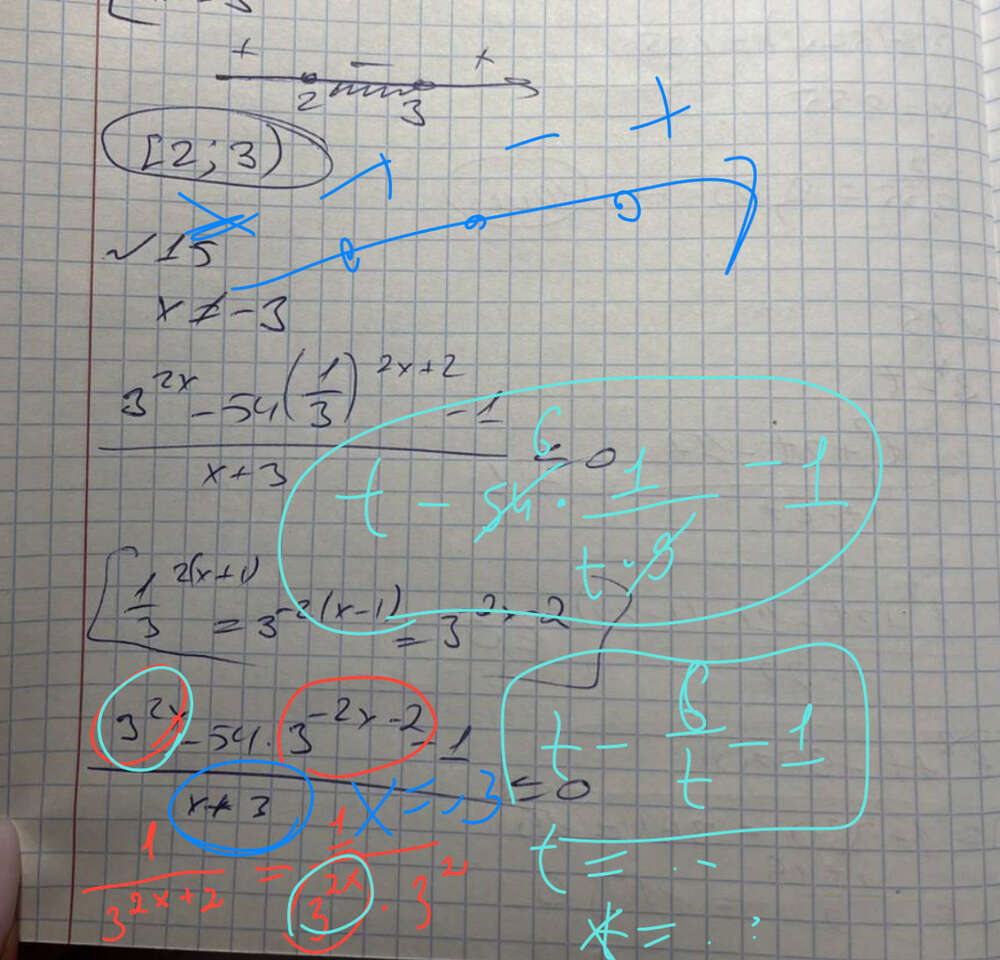 + − +
2 3
[2; 3)
+ − +
√15 x
x ≠ -3
3^{2x} - 54(1/3)^{2x+2} - 1
x + 3
≤ 0
6
t - 54 · 1/(t · 9) - 1
1/3^{2(x+1)} = 3^{-2(x-1)} = 3^{-2x-2}
3^{2x} - 54 · 3^{-2x-2} - 1
x + 3
≤ 0
x = -3
t - 6/t - 1
1/3^{2x+2} = 1/(3^{2x} · 3^2)
t = ..
x = ..